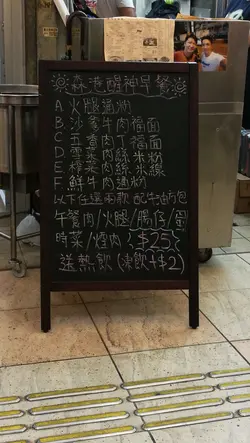 樂森港醒神早餐樂
A 火腿通粉
B 沙爹牛肉福面
C 五香肉丁福面
D 雪菜肉絲米粉
E 榨菜肉絲米線
F 鮮牛肉通粉
以下任選兩款 配牛油方包
午餐肉/火腿/腸仔/蛋
時菜/煙肉 $25
送熱飲(凍飲+$2)